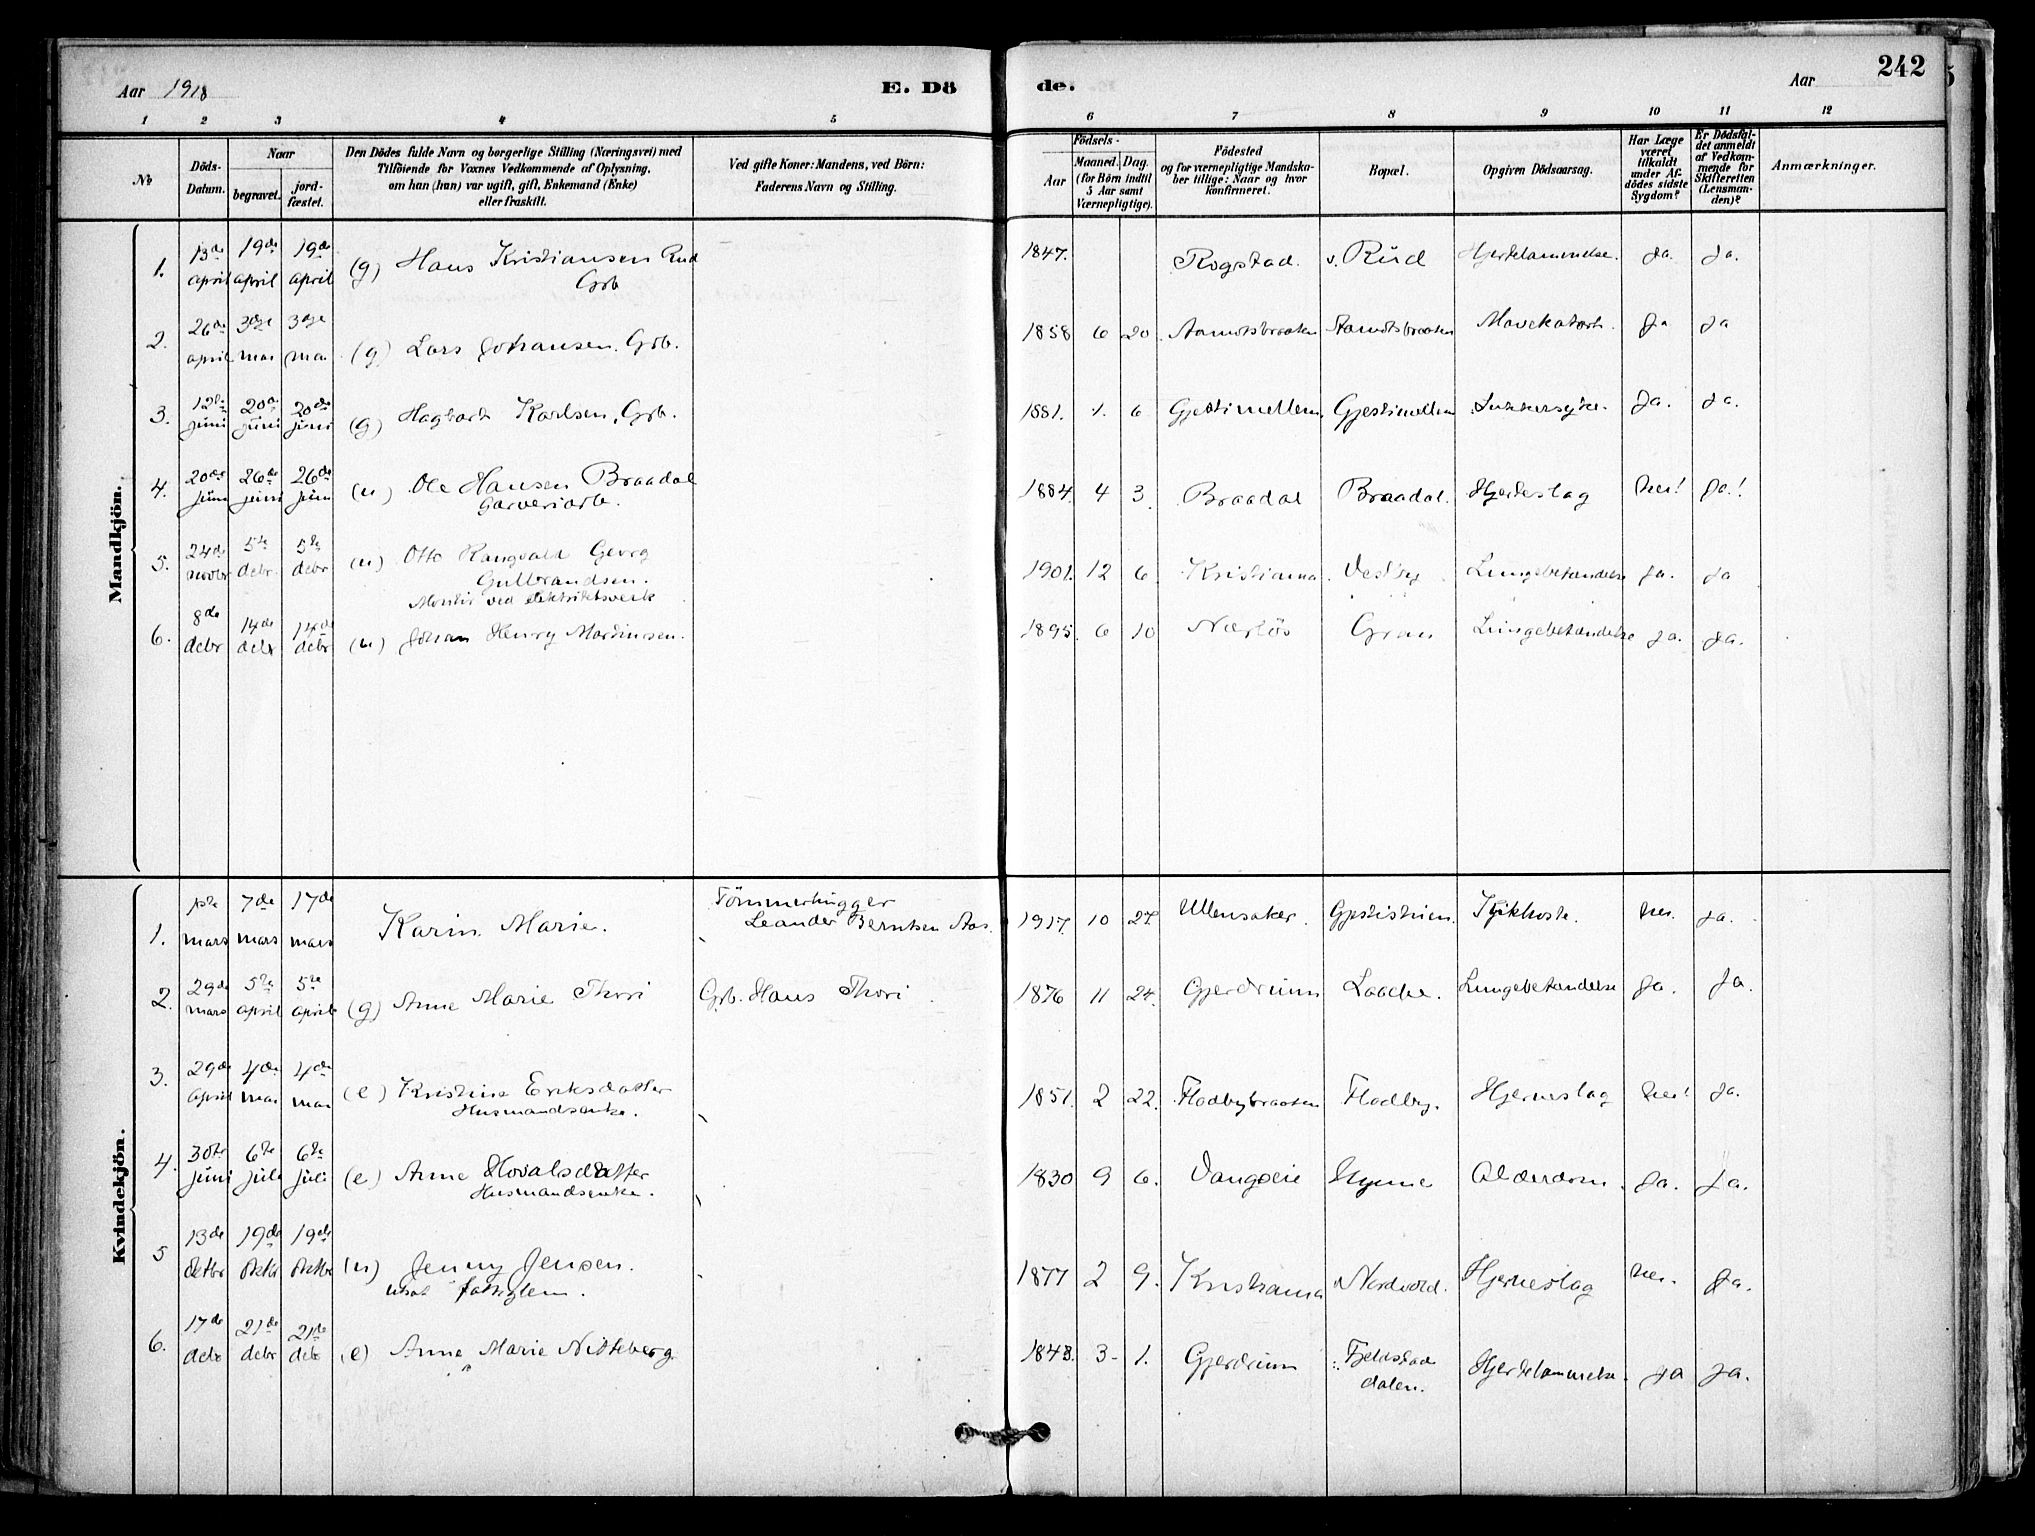 Aar 1918
E. Dö
de.
Aar
242
1 2 3 4 5 6 7 8 9 10 11 12
№
Döds-
Datum.
Naar
begravet.
jord-
fæstet.
Den Dödes fulde Navn og borgerlige Stilling (Næringsvei) med
Tilföiende for Voxnes Vedkommende af Oplysning,
om han (hun) var ugift, gift, Enkemand (Enke)
eller fraskilt.
Ved gifte Koner: Mandens, ved Börn:
Faderens Navn og Stilling.
Födsels-
Aar
Maaned. Dag.
(for Börn indtil
5 Aar samt
Værnepligtige).
Födested
og for værnepligtige Mandska-
ber tillige: Naar og hvor
konfirmeret.
Bopæl.
Opgiven Dödsaarsag.
Har Læge
været
tilkaldt
under Af-
dödes sidste
Sygdom?
Er Dödsfal-
det anmeldt
af Vedkom-
mende for
Skifteretten
(Lensman-
den)?
Anmærkninger.
Mandkjön.
1. 13de april 19de april 19de april (g) Hans Kristiansen Rud 1847. Rogstad. v. Rud Hjertelammelse. Ja. Ja.
Grb
2. 26de april 3dje mai 3dje mai (g) Lars Johansen. Grb. 1858 6 20 Aamotsbraaten Aamotsbraaten Mavekatarh. Ja Ja
3. 12te juni 20de juni 20de juni (g) Hagbart Karlsen, Grb. 1881. 1. 6 Gjestimellem. Gjestimellem Sukkersyke. Ja. Ja.
4. 20de juni 26de juni 26de juni (u) Ole Hansen Braadal 1884. 4 3. Braadal Braadal. Hjerteslag Nei! Ja!
Garveriarb.
5. 24de novbr 5te debr. 5te debr (u) Otto Rangvald Georg 1901. 12 6 Kristiania Vestby Lungebetændelse Ja. Ja
Gulbrandsen.
Montør ved elektrisitsverk
6. 8de debr 14de debr 14de debr (u) Johan Henry Martinsen. 1895. 6 10 Nærløs Gran Lungebetændelse Ja. Ja.
Kvindekjön.
1. 1ste mars 7de mars 17de mars Karin Marie. Tömmerhugger
Leander Berntsen Aas. 1917. 10 27. Ullensaker. Kikhoste. Nei. Ja.
2. 29de mars 5te april 5te april (g) Anne Marie Thori Grb. Hans Thori. 1876 11 24. Gjerdrum Laache. Lungebetændelse Ja. Ja.
3. 29de april 4de mai 4de mai (e) Kristine Eriksdatter 1851. 2 22. Fladbybraaten Fladby. Hjerneslag Nei! Ja.
Husmandsenke.
4. 30te juni 6te juli 6te juli (e) Anne Hovalsdatter 1830 9 6. Vangseie Hynne Alderdom. Ja. Ja.
Husmandsenke.
5 13de oktbr 19de oktbr 19de oktbr (u) Jenny Jensen. 1877 2 9. Kristiania Nordvold. Hjerneslag Nei. Ja.
utsat fattiglem.
6. 17de debr 21de debr 21de debr (e) Anne Marie Nitteberg 1843. 3. 1. Gjerdrum Fjeldstad Hjertelammelse. Ja Ja.
dalen.